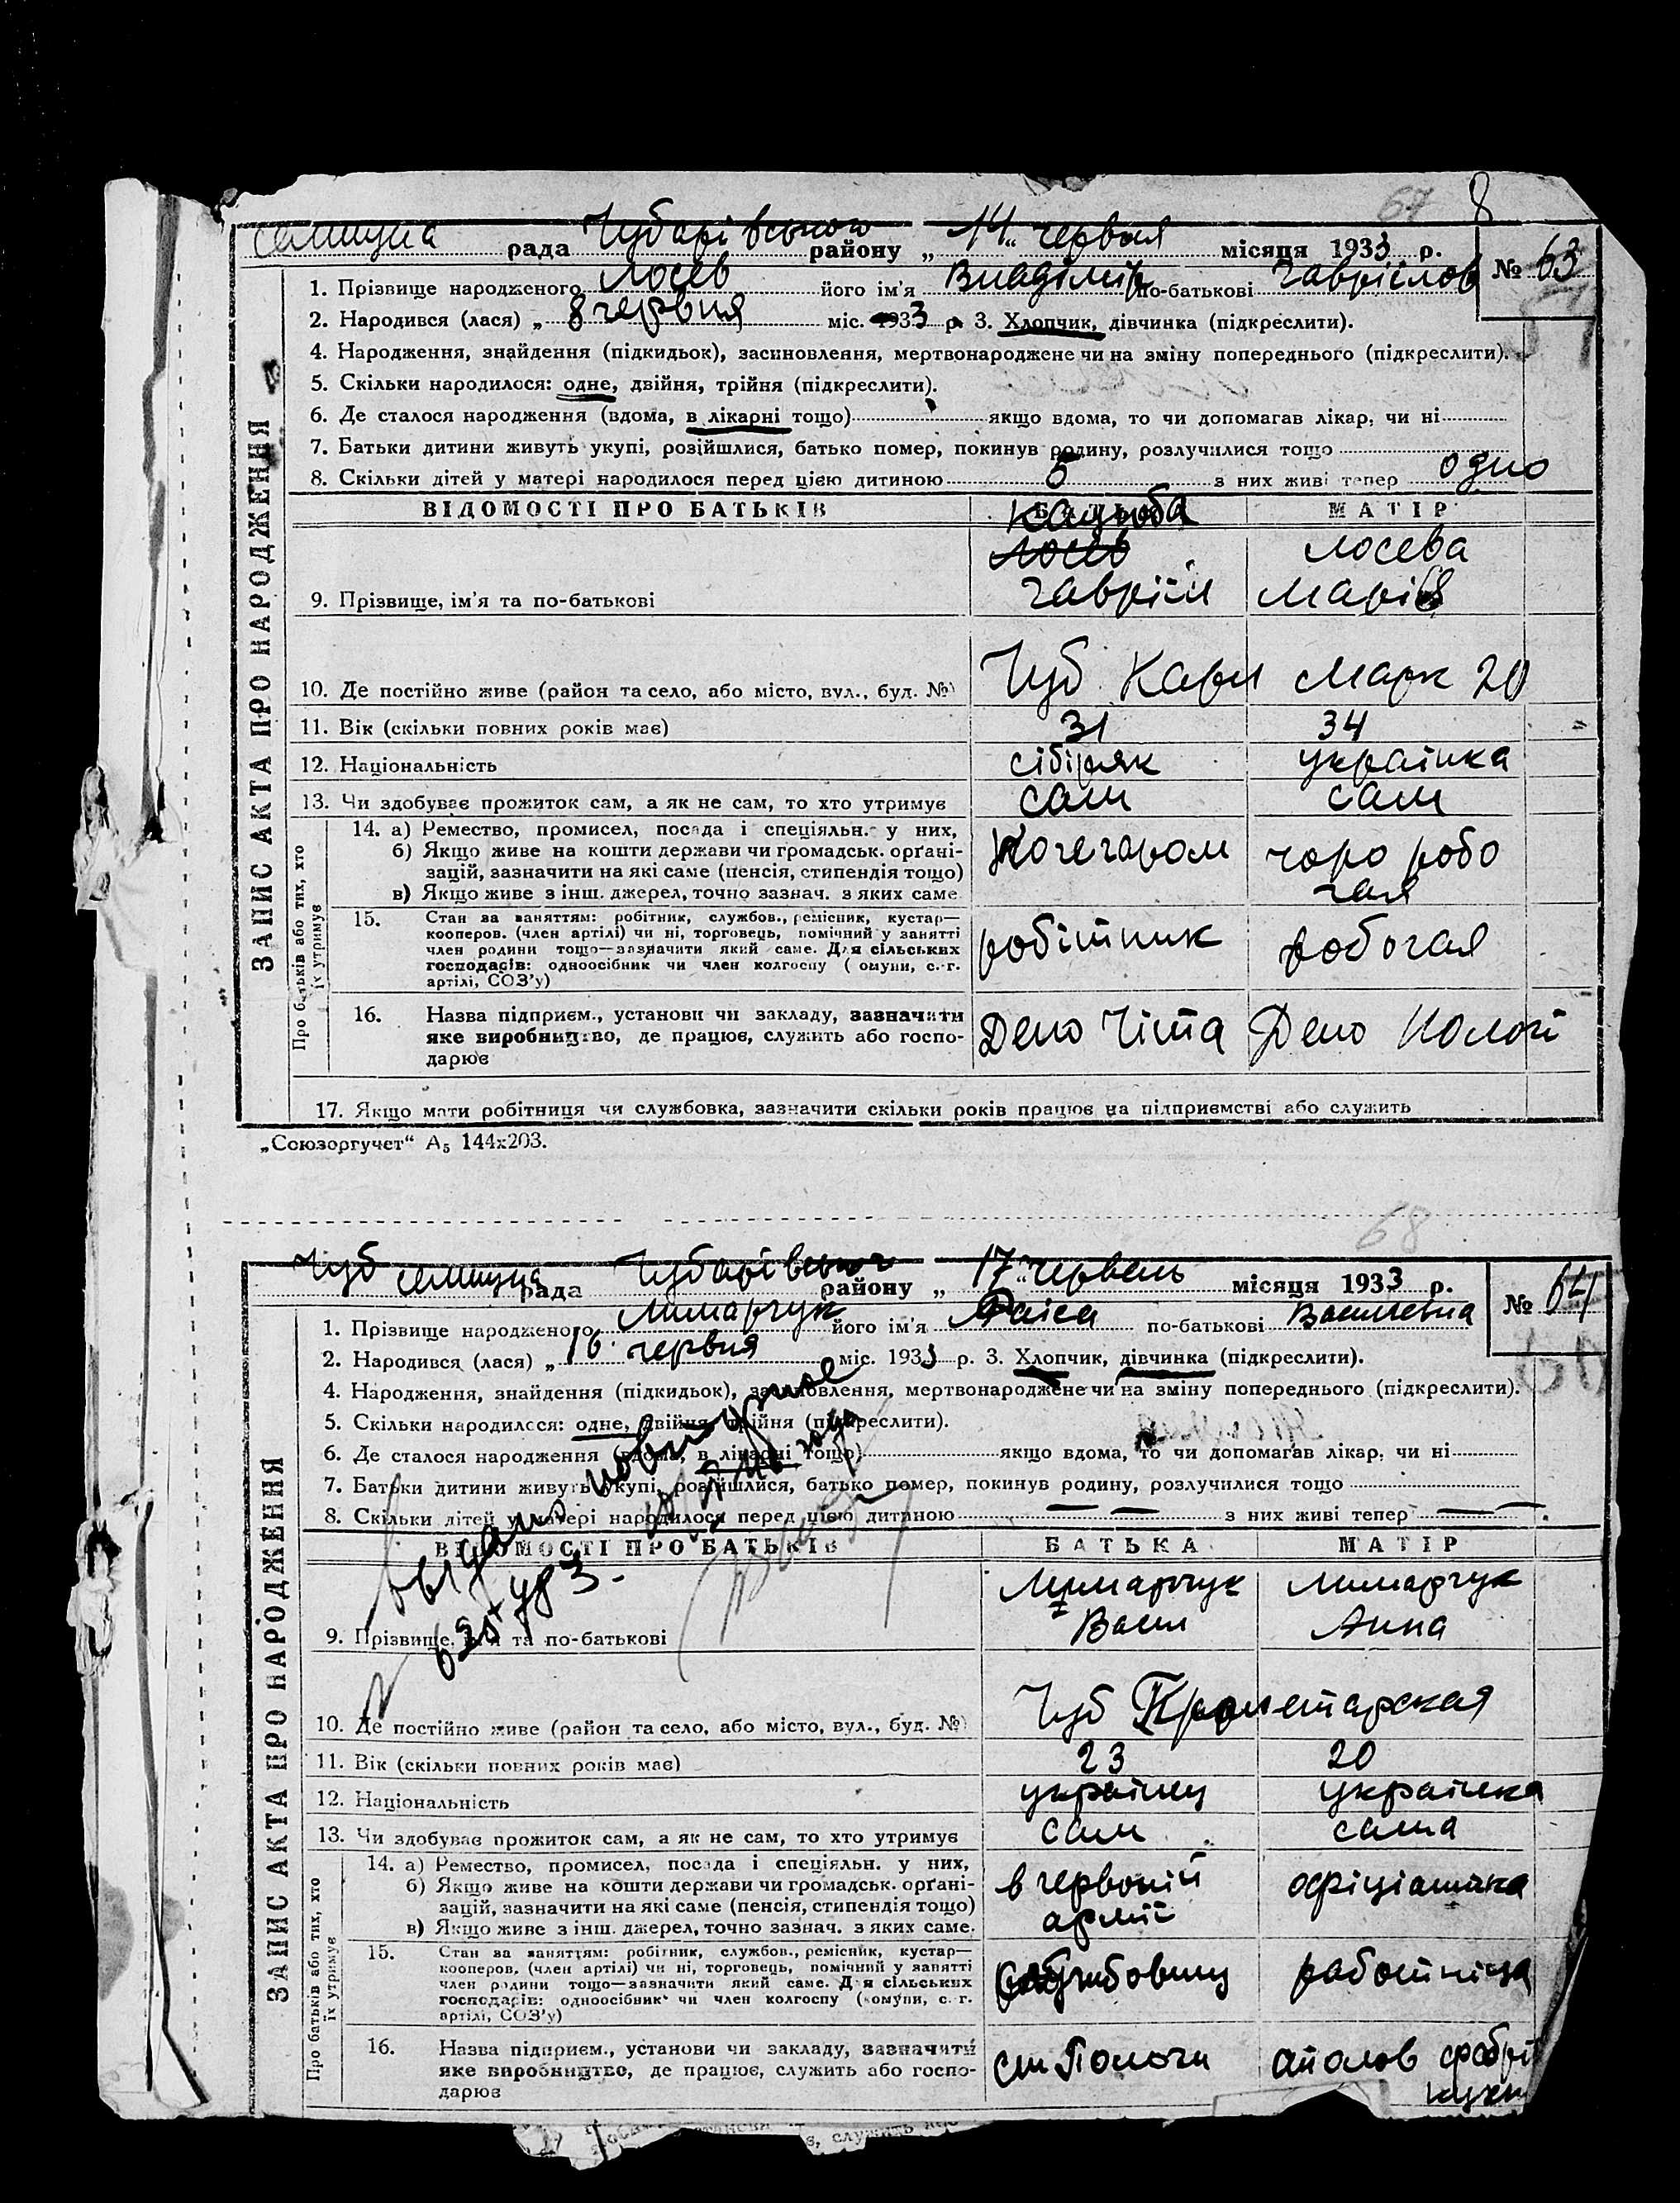 67 8
селищна рада Чубарівського району „ 14 “ червня місяця 1933 р. № 63
1. Прізвище народженого Лосев його ім'я Владімір по-батькові Гавріілов
2. Народився (лася) „ 8 червня міс. 1933 р. 3. Хлопчик, дівчинка (підкреслити).
4. Народження, знайдення (підкидьок), засиновлення, мертвонароджене чи на зміну попереднього (підкреслити).
5. Скільки народилося: одне, двійня, трійня (підкреслити).
6. Де сталося народження (вдома, в лікарні тощо) якщо вдома, то чи допомагав лікар, чи ні
7. Батьки дитини живуть укупі, розійшлися, батько помер, покинув родину, розлучилися тощо
8. Скільки дітей у матері народилося перед цією дитиною 5 з них живі тепер одно
ЗАПИС АКТА ПРО НАРОДЖЕННЯ
ВІДОМОСТІ ПРО БАТЬКІВ БАТЬКА МАТІР
Лосев Лосева
9. Прізвище, ім'я та по-батькові Гавріїл Марія
10. Де постійно живе (район та село, або місто, вул., буд. №) Чуб Карл Марк 20
11. Вік (скільки повних років має) 31 34
12. Національність сібіряк українка
13. Чи здобуває прожиток сам, а як не сам, то хто утримує сам сам
Про батьків або тих, хто їх утримує
14. а) Ремество, промисел, посада і спеціяльн. у них,
б) Якщо живе на кошти держави чи громадськ. орґані-
зацій, зазначити на які саме (пенсія, стипендія тощо)
в) Якщо живе з інш. джерел, точно зазнач. з яких саме
Кочегаром чоро робо
чая
15. Стан за заняттям: робітник, службов., ремісник, кустар—
кооперов. (член артілі) чи ні, торговець, помічний у занятті
член родини тощо—зазначити який саме. Для сільських
господарів: одноосібник чи член колгоспу (комуни, с.-г.
артілі, СОЗ'у)
робітник робочая
16. Назва підприєм., установи чи закладу, зазначити
яке виробництво, де працює, служить або госпо-
дарює
Депо Чіта Депо Пологі
17. Якщо мати робітниця чи службовка, зазначити скільки років працює на підприємстві або служить
„Союзоргучет“ А₅ 144х203.
68
Чуб селищна рада Чубарівського району „ 17 “ червень місяця 1933 р. № 64
1. Прізвище народженого Лимарчук його ім'я Раіса по-батькові Василевна
2. Народився (лася) „ 16 червня міс. 1933 р. 3. Хлопчик, дівчинка (підкреслити).
4. Народження, знайдення (підкидьок), засиновлення, мертвонароджене чи на зміну попереднього (підкреслити).
5. Скільки народилося: одне, двійня, трійня (підкреслити).
6. Де сталося народження (вдома, в лікарні тощо) якщо вдома, то чи допомагав лікар, чи ні
7. Батьки дитини живуть укупі, розійшлися, батько помер, покинув родину, розлучилися тощо
8. Скільки дітей у матері народилося перед цією дитиною — — з них живі тепер — —
ЗАПИС АКТА ПРО НАРОДЖЕННЯ
ВІДОМОСТІ ПРО БАТЬКІВ БАТЬКА МАТІР
Лимарчук Лимарчук
9. Прізвище, ім'я та по-батькові Васил Анна
10. Де постійно живе (район та село, або місто, вул., буд. №) Чуб Пролетарская
11. Вік (скільки повних років має) 23 20
12. Національність українец українка
13. Чи здобуває прожиток сам, а як не сам, то хто утримує сам сама
Про батьків або тих, хто їх утримує
14. а) Ремество, промисел, посада і спеціяльн. у них,
б) Якщо живе на кошти держави чи громадськ. орґані-
зацій, зазначити на які саме (пенсія, стипендія тощо)
в) Якщо живе з інш. джерел, точно зазнач. з яких саме.
в червоній офіціантка
армії
15. Стан за заняттям: робітник, службов., ремісник, кустар—
кооперов. (член артілі) чи ні, торговець, помічний у занятті
член родини тощо—зазначити який саме. Для сільських
господарів: одноосібник чи член колгоспу (комуни, с. г.
артілі, СОЗ'у)
работніца
16. Назва підприєм., установи чи закладу, зазначити
яке виробництво, де працює, служить або госпо-
дарює
ст Пологи